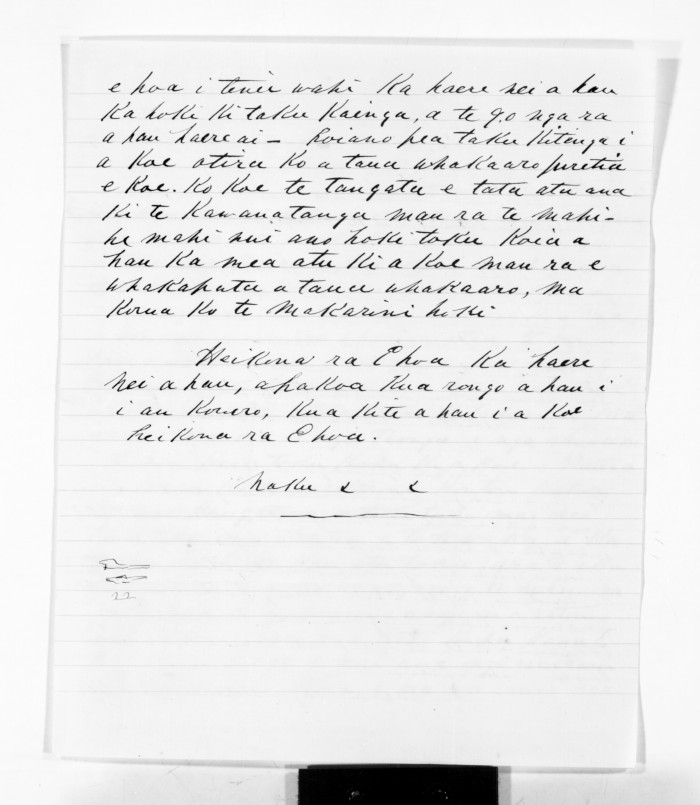 e hoa i tenei wahi Ka haere nei a hau
Ka hoki ki taku Kainga, a te 9.0 nga ra
a hau haere ai – hoiano pea taku Kitenga i
a Koe otira Ko a taua whakaaro puretia
e Koe. Ko Koe te tangata e tata atu ana
Ki te Kawanatanga mau ra te mahi –
he mahi nui ano hoki toku Koia a
hau Ka mea atu Ki a Koe mau ra e
whakapata a taua whakaaro, ma
Korua Ko te Makarini hoki
Heikona ra E hoa Ka haere
nei a hau, ahakoa Kua rongo a hau i
i au Korero, Kua Kite a hau i a Koe
heikona ra E hoa.
Naku & &
22